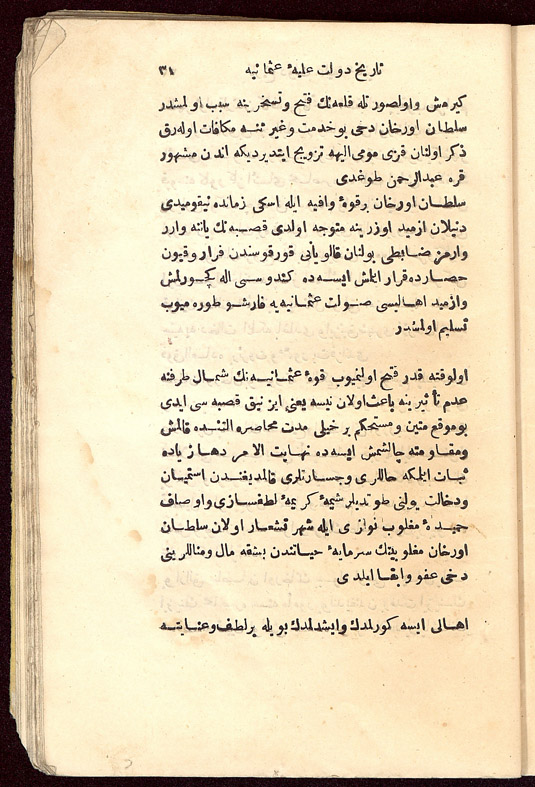 تاریخ دولت علیهٔ عثمانیه ٣١
کیرمش واولصورتله قلعه‌نك فتح وتسخیرینه سبب اولمشدر
سلطان اورخان دخی بو خدمت وغیرتنه مکافات اوله‌رق
ذکر اولنان قزی مومی الیهه تزویج ایتدیردیکه اندن مشهور
قره عبدالرحمن طوغدی
سلطان اورخان برقوهٔ وافیه ایله اسکی زمانده نیقومیدی
دنیلان ازمید اوزرینه متوجه اولدی قصبه‌نك یاننه وارر
وارمز ضابطی بولنان قالویانی قورقوسندن فرار وقیون
حصارده قرار ایتمش ایسه‌ده کندوسی اله کچورلمش
وازمید اهالیسی صولت عثمانیه‌یه قارشو طوره میوب
تسلیم اولمشدر
اولوقته قدر فتح اولنمیوب قوهٔ عثمانیه‌نك شمال طرفنه
عدم تأثیرینه باعث اولان نیسه یعنی ایزنیق قصبه سی ایدی
بوموقع متین ومستحکم بر خیلی مدت محاصره التنده قالمش
ومقاومته چالشمش ایسه‌ده نهایت الامر دها زیاده
ثبات ایلمکه حاللری وجسارتلری قالمدیغندن استیمان
ودخالت یولنی طوتدیلر شیمهٔ کریمهٔ لطفسازی واوصاف
حمیدهٔ مغلوب نوازی ایله شهرتشعار اولان سلطان
اورخان مغلوبینك سرمایهٔ حیاتندن بشقه مال ومناللرینی
دخی عفو وابقا ایلدی
اهالی ایسه کورلمدك وایشدلمدك بویله برلطف وعنایته